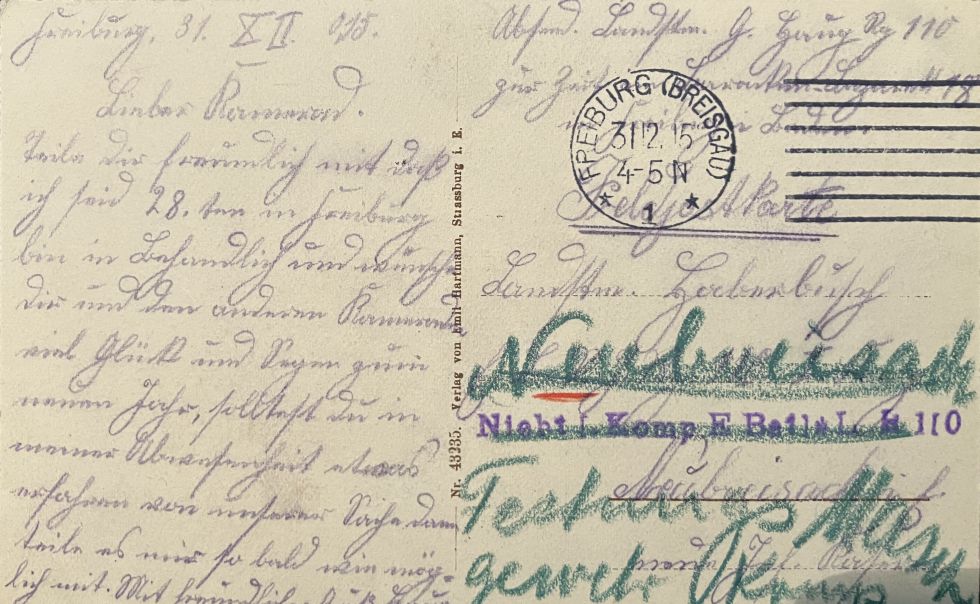 Freiburg, 31. XII. 015.
Lieber Kamerad.
Teile Dir freundlich mit daß
ich seid 28. ten in Freiburg
bin in Behandlich und wünsche
Dir und den anderen Kamerad
viel Glück und Segen zum
neuen Jahr, solltest Du in
meiner Abwesenheit etwas
erfahren von unserer Sache dann
teile es mir so bald wie mög-
lich mit. Mit freundlich. Gruß
Nr. 43235. Verlag von Emil Hartmann, Strassburg i. E.
Absend. Landstm. G. Haug Rg 110
zur Zeit Baracken-Lazarett
Freiburg i Baden
FREIBURG (BREISGAU)
31.12.15
4-5 N
* 1 *
Feldpostkarte
Landstm. Haberbusch
Neubreisach
Nicht I. Komp. E. Batl. L. R 110
Neubreisach
Festungs Masch
gewehr Komp